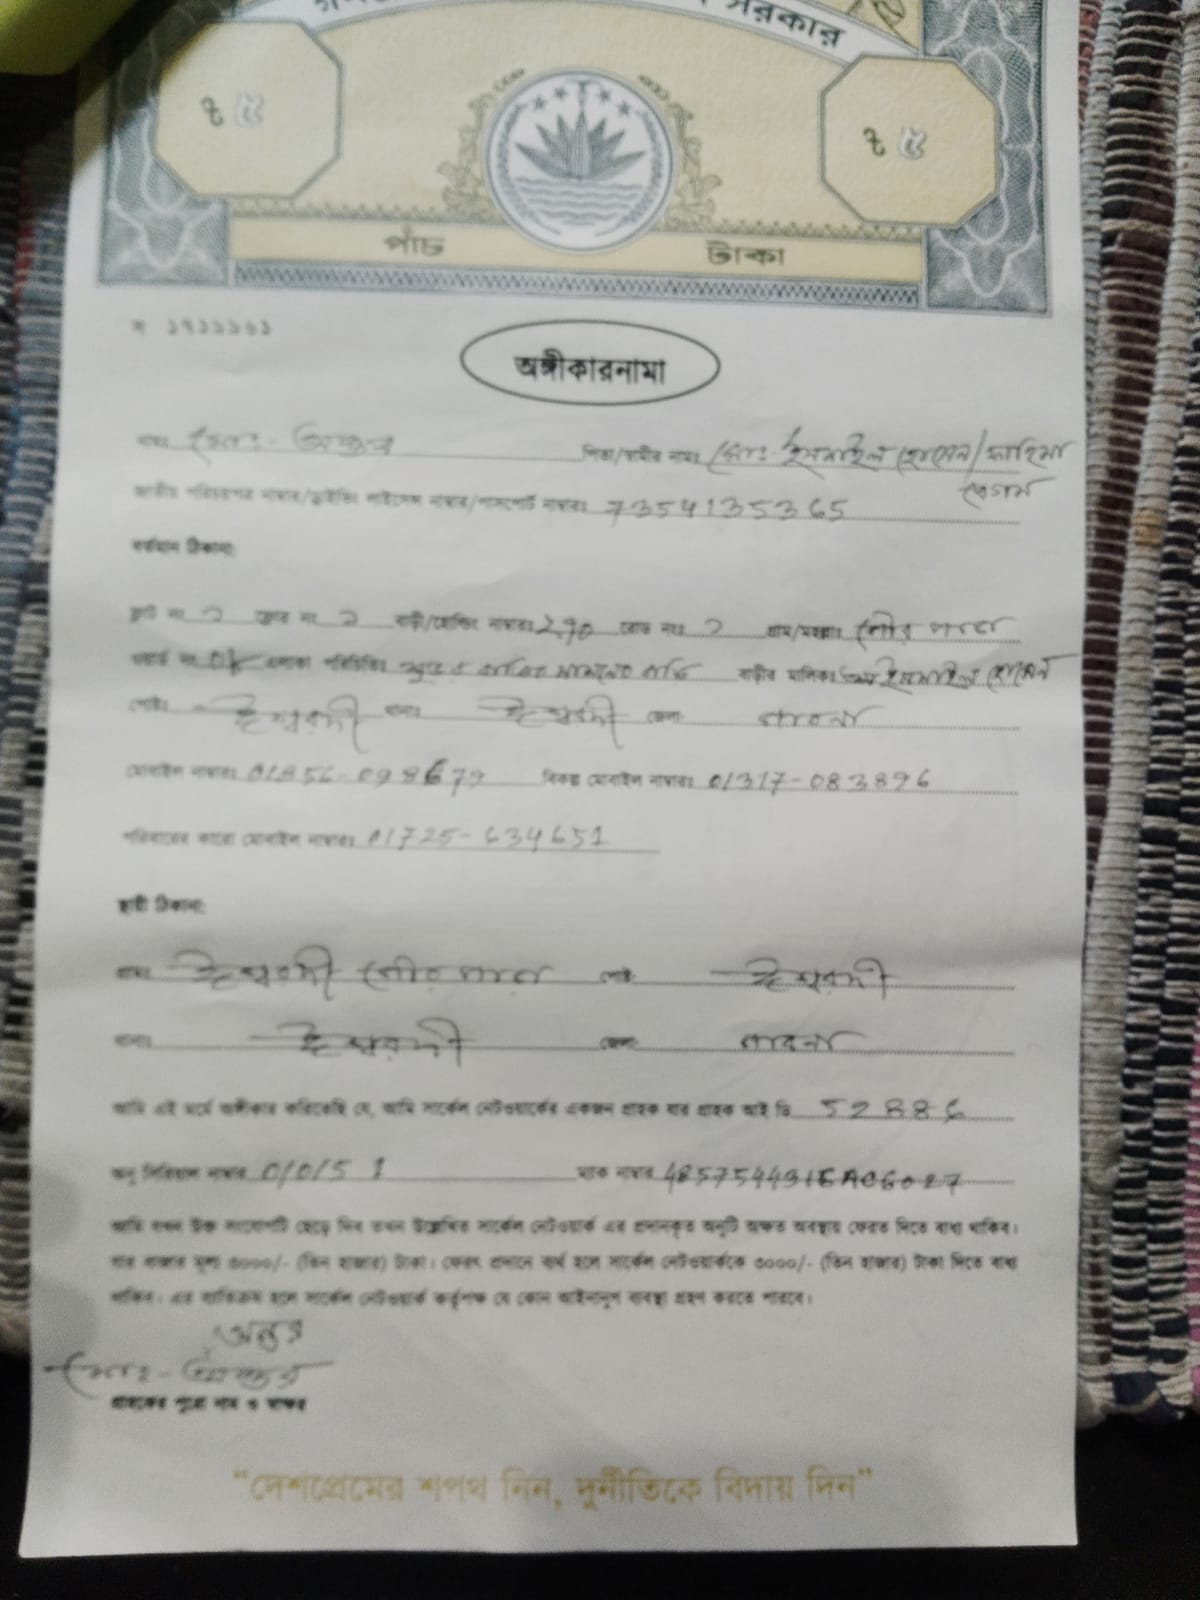 সরকার
৳ ৫
৳ ৫
পাঁচ টাকা
অঙ্গীকারনামা
নামঃ মোঃ- অন্তর পিতা/স্বামীর নামঃ মোঃ- ইসমাইল হোসেন/ফাহিমা
বেগম
জাতীয় পরিচয়পত্র নাম্বার/ড্রাইভিং লাইসেন্স নাম্বার/পাসপোর্ট নাম্বারঃ 7354135365
বর্তমান ঠিকানা:
ফ্লাট নং ফ্লোর নং বাড়ী/হোল্ডিং নাম্বারঃ রোড নংঃ গ্রাম/মহল্লাঃ
ওয়ার্ড নং এলাকা পরিচিতিঃ বাড়ীর মালিকঃ ইসমাইল হোসেন
পোষ্টঃ ঈশ্বরদী থানাঃ ঈশ্বরদী জেলা: পাবনা
মোবাইল নাম্বারঃ 01856-098679 বিকল্প মোবাইল নাম্বারঃ 01317-083896
পরিবারের কারো মোবাইল নাম্বারঃ 01725-634651
স্থায়ী ঠিকানা:
গ্রামঃ ঈশ্বরদী পোষ্ট ঈশ্বরদী
থানাঃ ঈশ্বরদী জেলা: পাবনা
আমি এই মর্মে অঙ্গীকার করিতেছি যে, আমি সার্কেল নেটওয়ার্কের একজন গ্রাহক যার গ্রাহক আই ডি 52886
অনু সিরিয়াল নাম্বার ম্যাক নাম্বার
আমি যখন উক্ত সংযোগটি ছেড়ে দিব তখন উল্লেখিত সার্কেল নেটওয়ার্ক এর প্রদানকৃত অনুটি অক্ষত অবস্থায় ফেরত দিতে বাধ্য থাকিব।
যার বাজার মূল্য ৩০০০/- (তিন হাজার) টাকা। ফেরৎ প্রদানে ব্যর্থ হলে সার্কেল নেটওয়ার্ককে ৩০০০/- (তিন হাজার) টাকা দিতে বাধ্য
থাকিব। এর ব্যতিক্রম হলে সার্কেল নেটওয়ার্ক কর্তৃপক্ষ যে কোন আইনানুগ ব্যবস্থা গ্রহণ করতে পারবে।
অন্তর
মোঃ- অন্তর
গ্রাহকের পুরো নাম ও স্বাক্ষর
"দেশপ্রেমের শপথ নিন, দুর্নীতিকে বিদায় দিন"